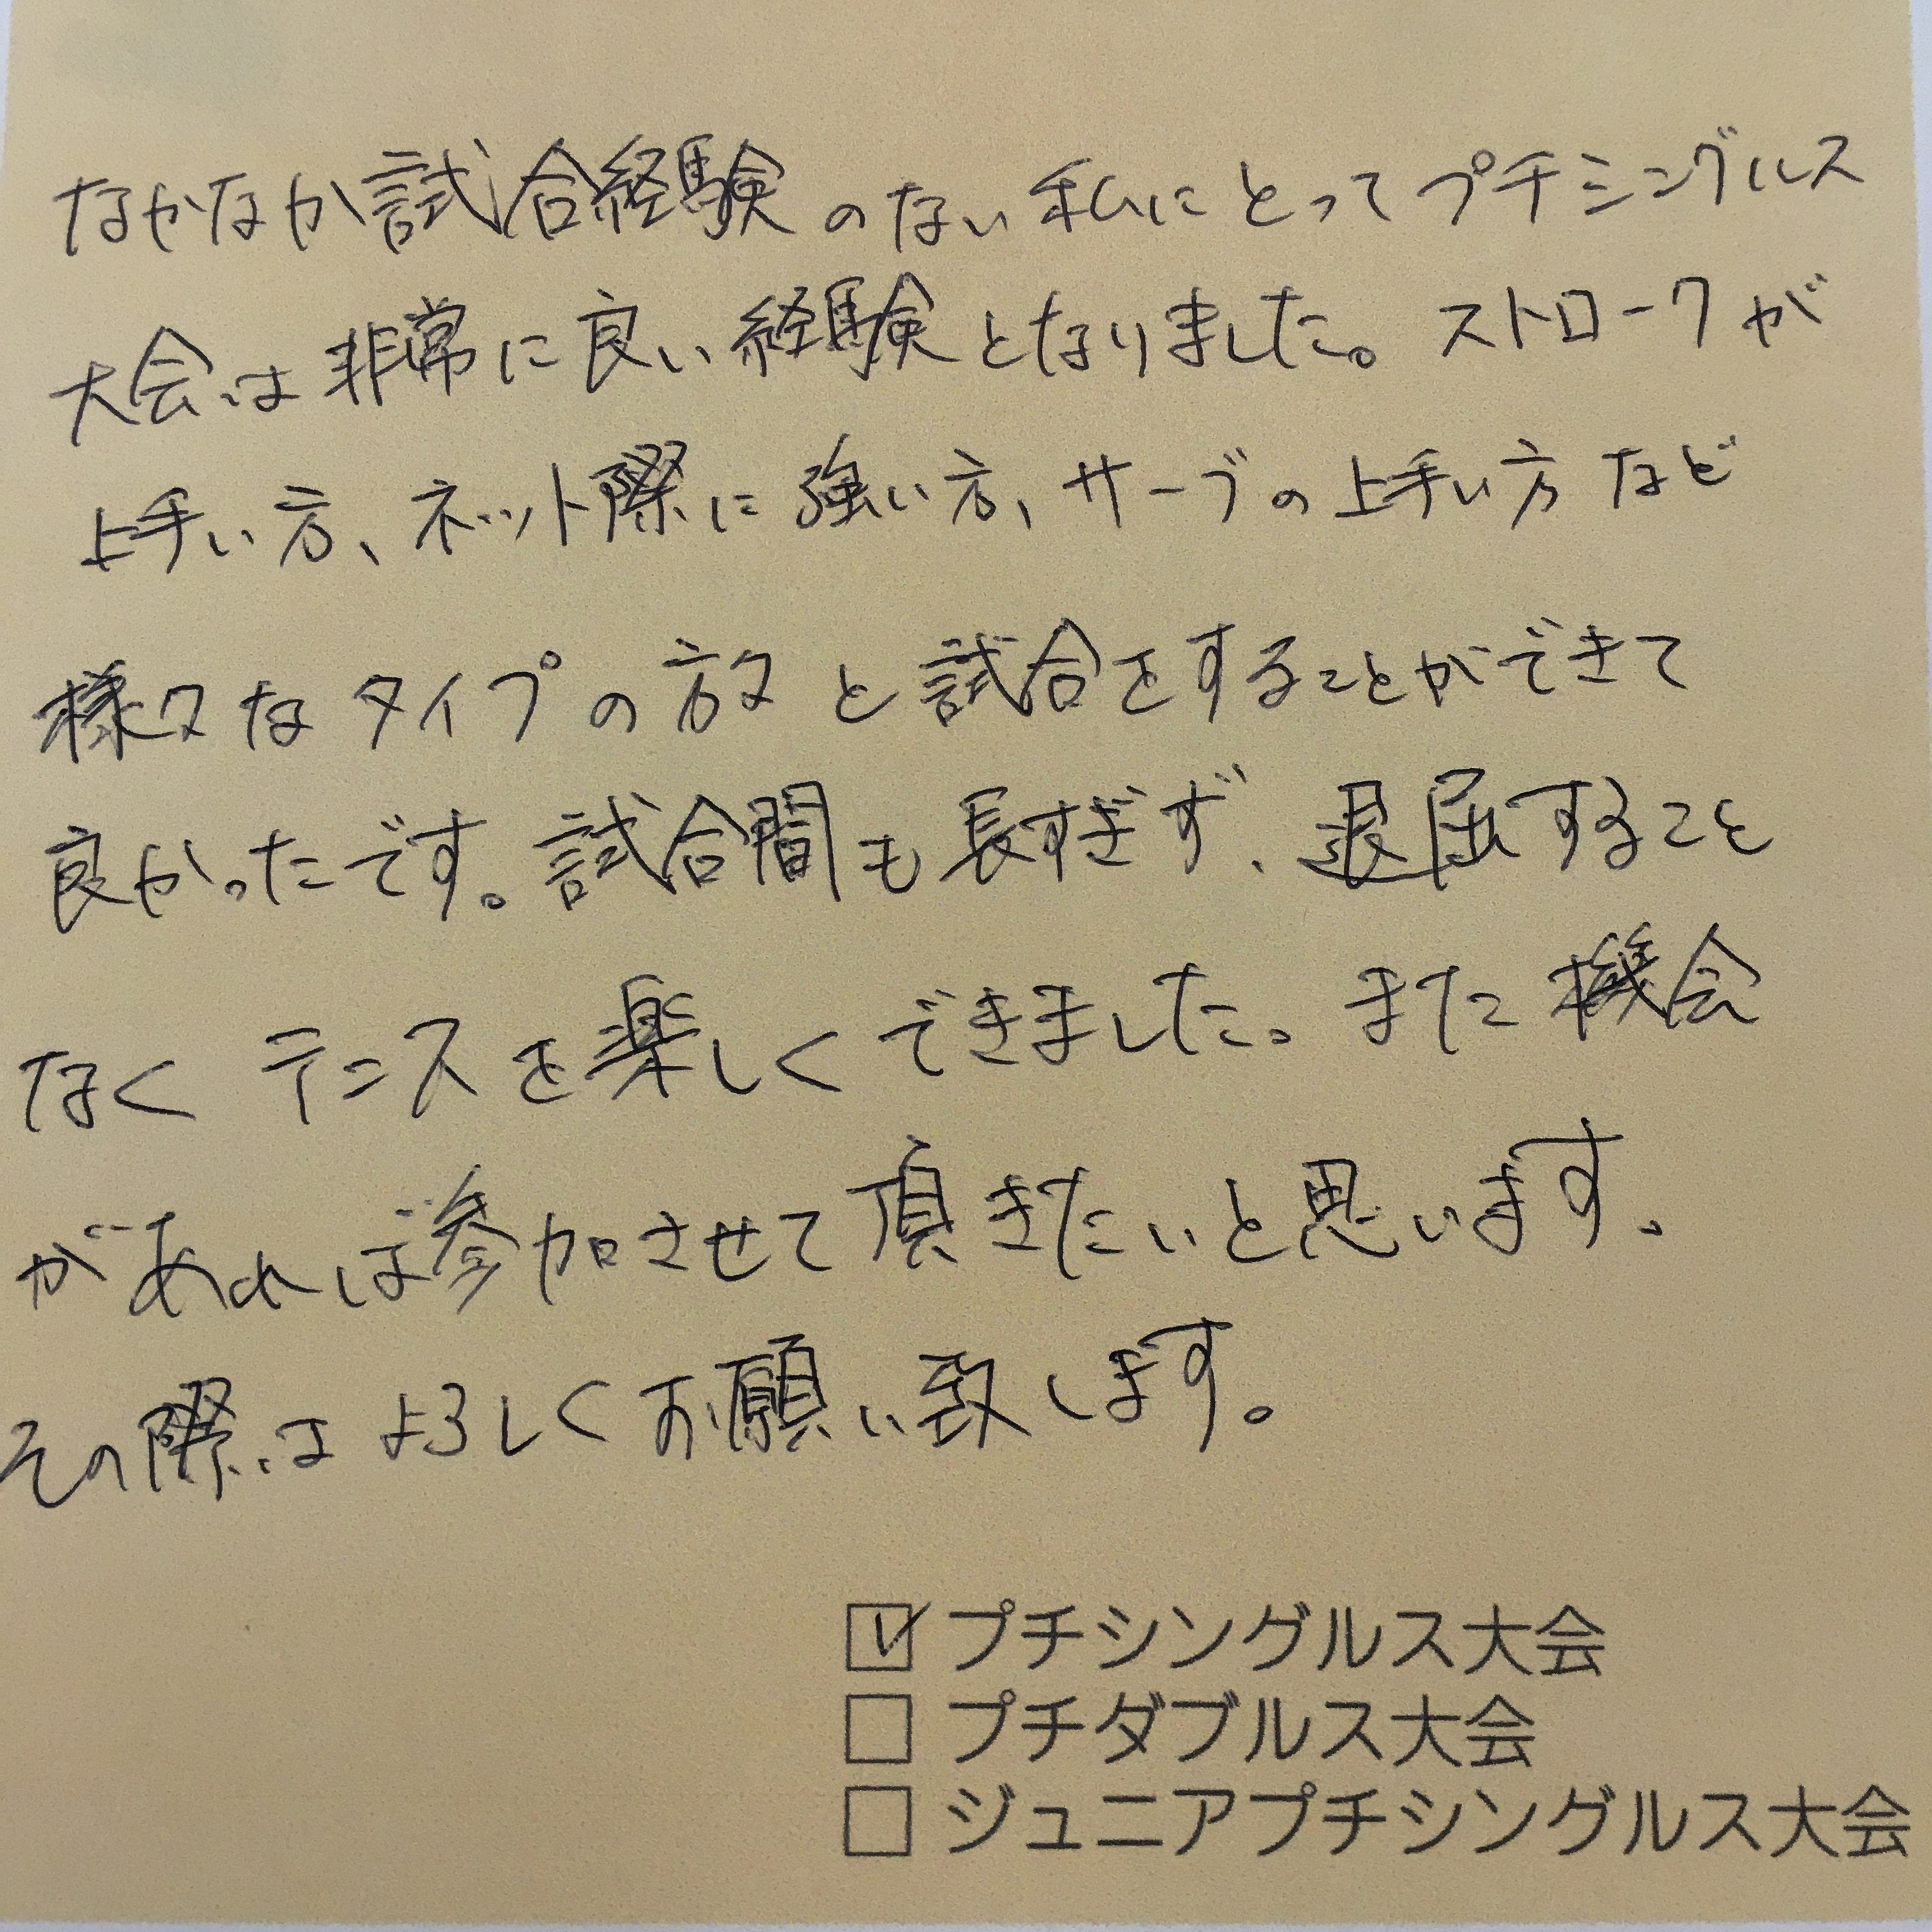 なかなか試合経験のない私にとってプチシングルス
大会は非常に良い経験となりました。ストロークが
上手い方、ネット際に強い方、サーブの上手い方など
様々なタイプの方々と試合をすることができて
良かったです。試合間も長すぎず、退屈すること
なくテニスを楽しくできました。また機会
があれば参加させて頂きたいと思います。
その際はよろしくお願い致します。
☑ プチシングルス大会
☐ プチダブルス大会
☐ ジュニアプチシングルス大会